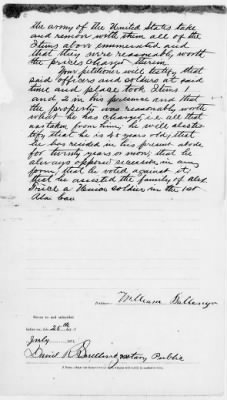 the army of the United States take
and remove with them all of the
Items above enumerated and
that they were reasonably worth
the prices charged therein.
Your petitioner will testify that
said officers and soldiers at said
time and place took Items 1
and 2 in his presence and that
the property was reasonably worth
what he has charged, i.e. all that
was taken from him; he will also tes
tify that he is 45 years old, that
he has resided in his present abode
for twenty years or more, that he
always opposed secession in any
form, that he voted against it,
that he assisted the family of
a Union soldier in the 1st
Ala Cav
William
Sworn to and subscribed
before me, this 26th
July
David R. Notary Public